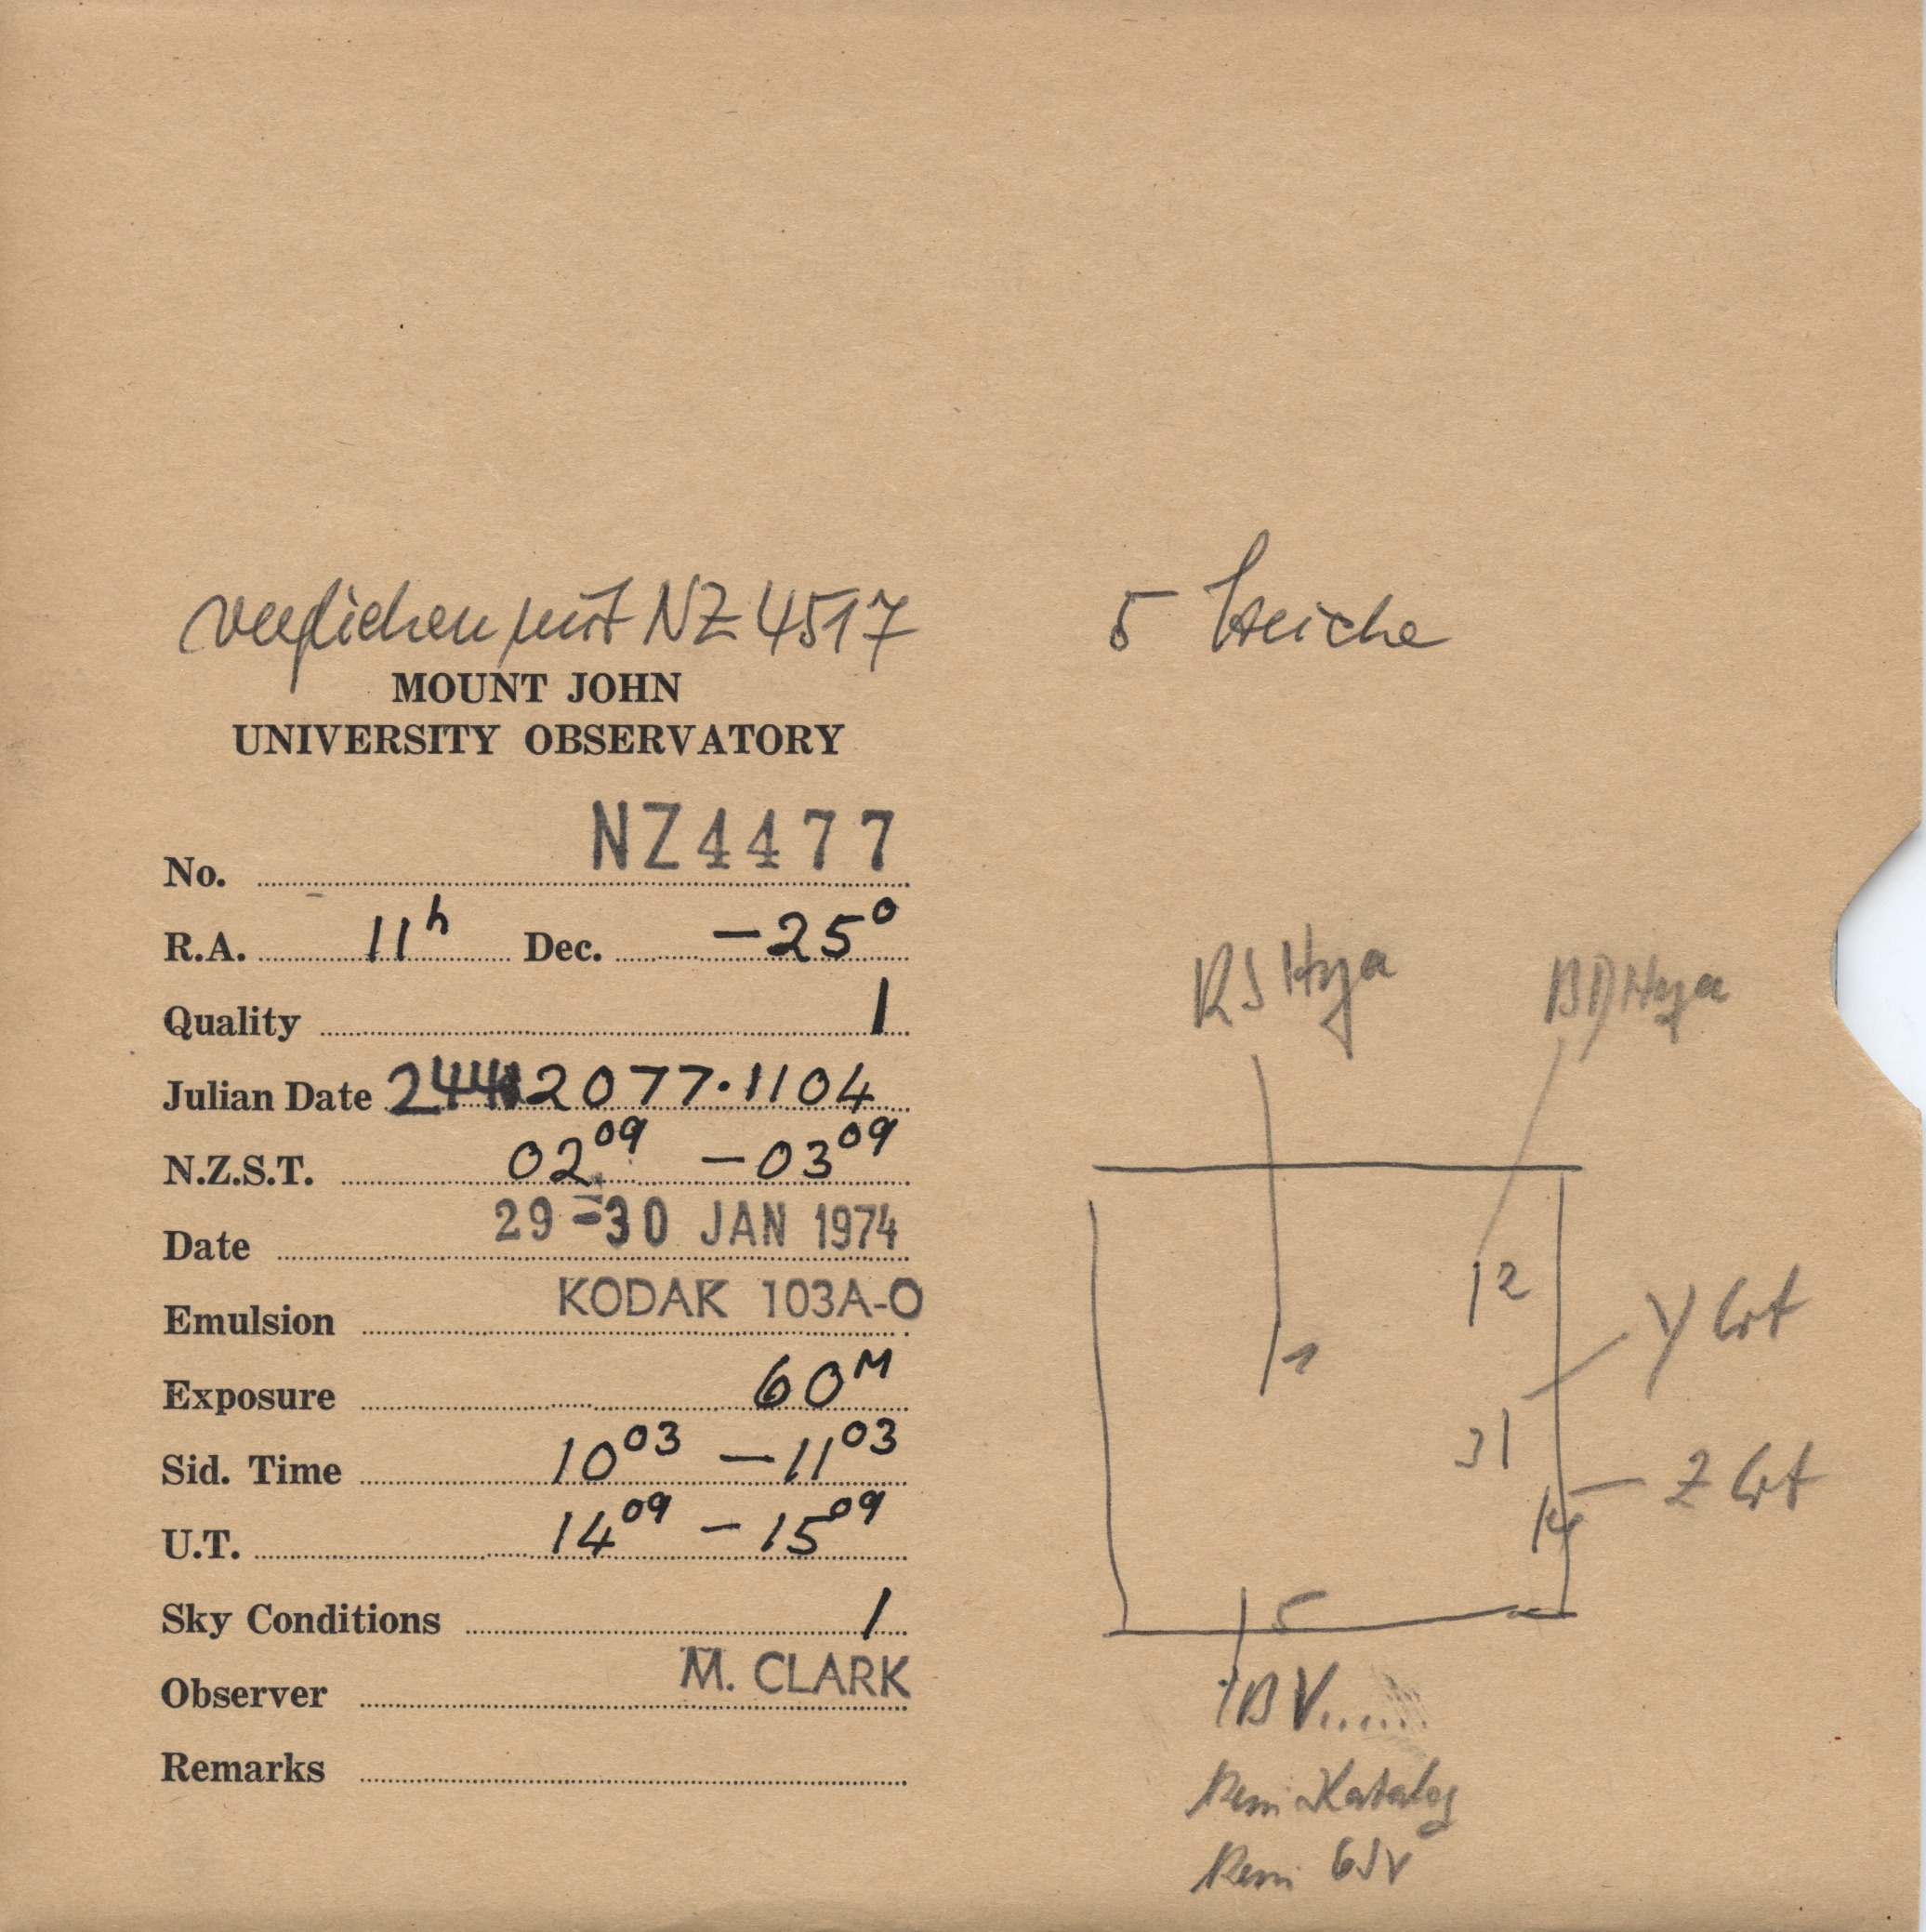 verglichen mit NZ 4517
5 Striche
MOUNT JOHN
UNIVERSITY OBSERVATORY
No. NZ4477
R.A. 11h Dec. -25°
Quality 1
Julian Date 2442077.1104
N.Z.S.T. 02 09 - 03 09
Date 29-30 JAN 1974
Emulsion KODAK 103A-O
Exposure 60M
Sid. Time 10 03 - 11 03
U.T. 14 09 - 15 09
Sky Conditions 1
Observer M. CLARK
Remarks
RS Hya
BD Hya
2
Y Crt
1
3
Z Crt
4
5
BV......
Katalog